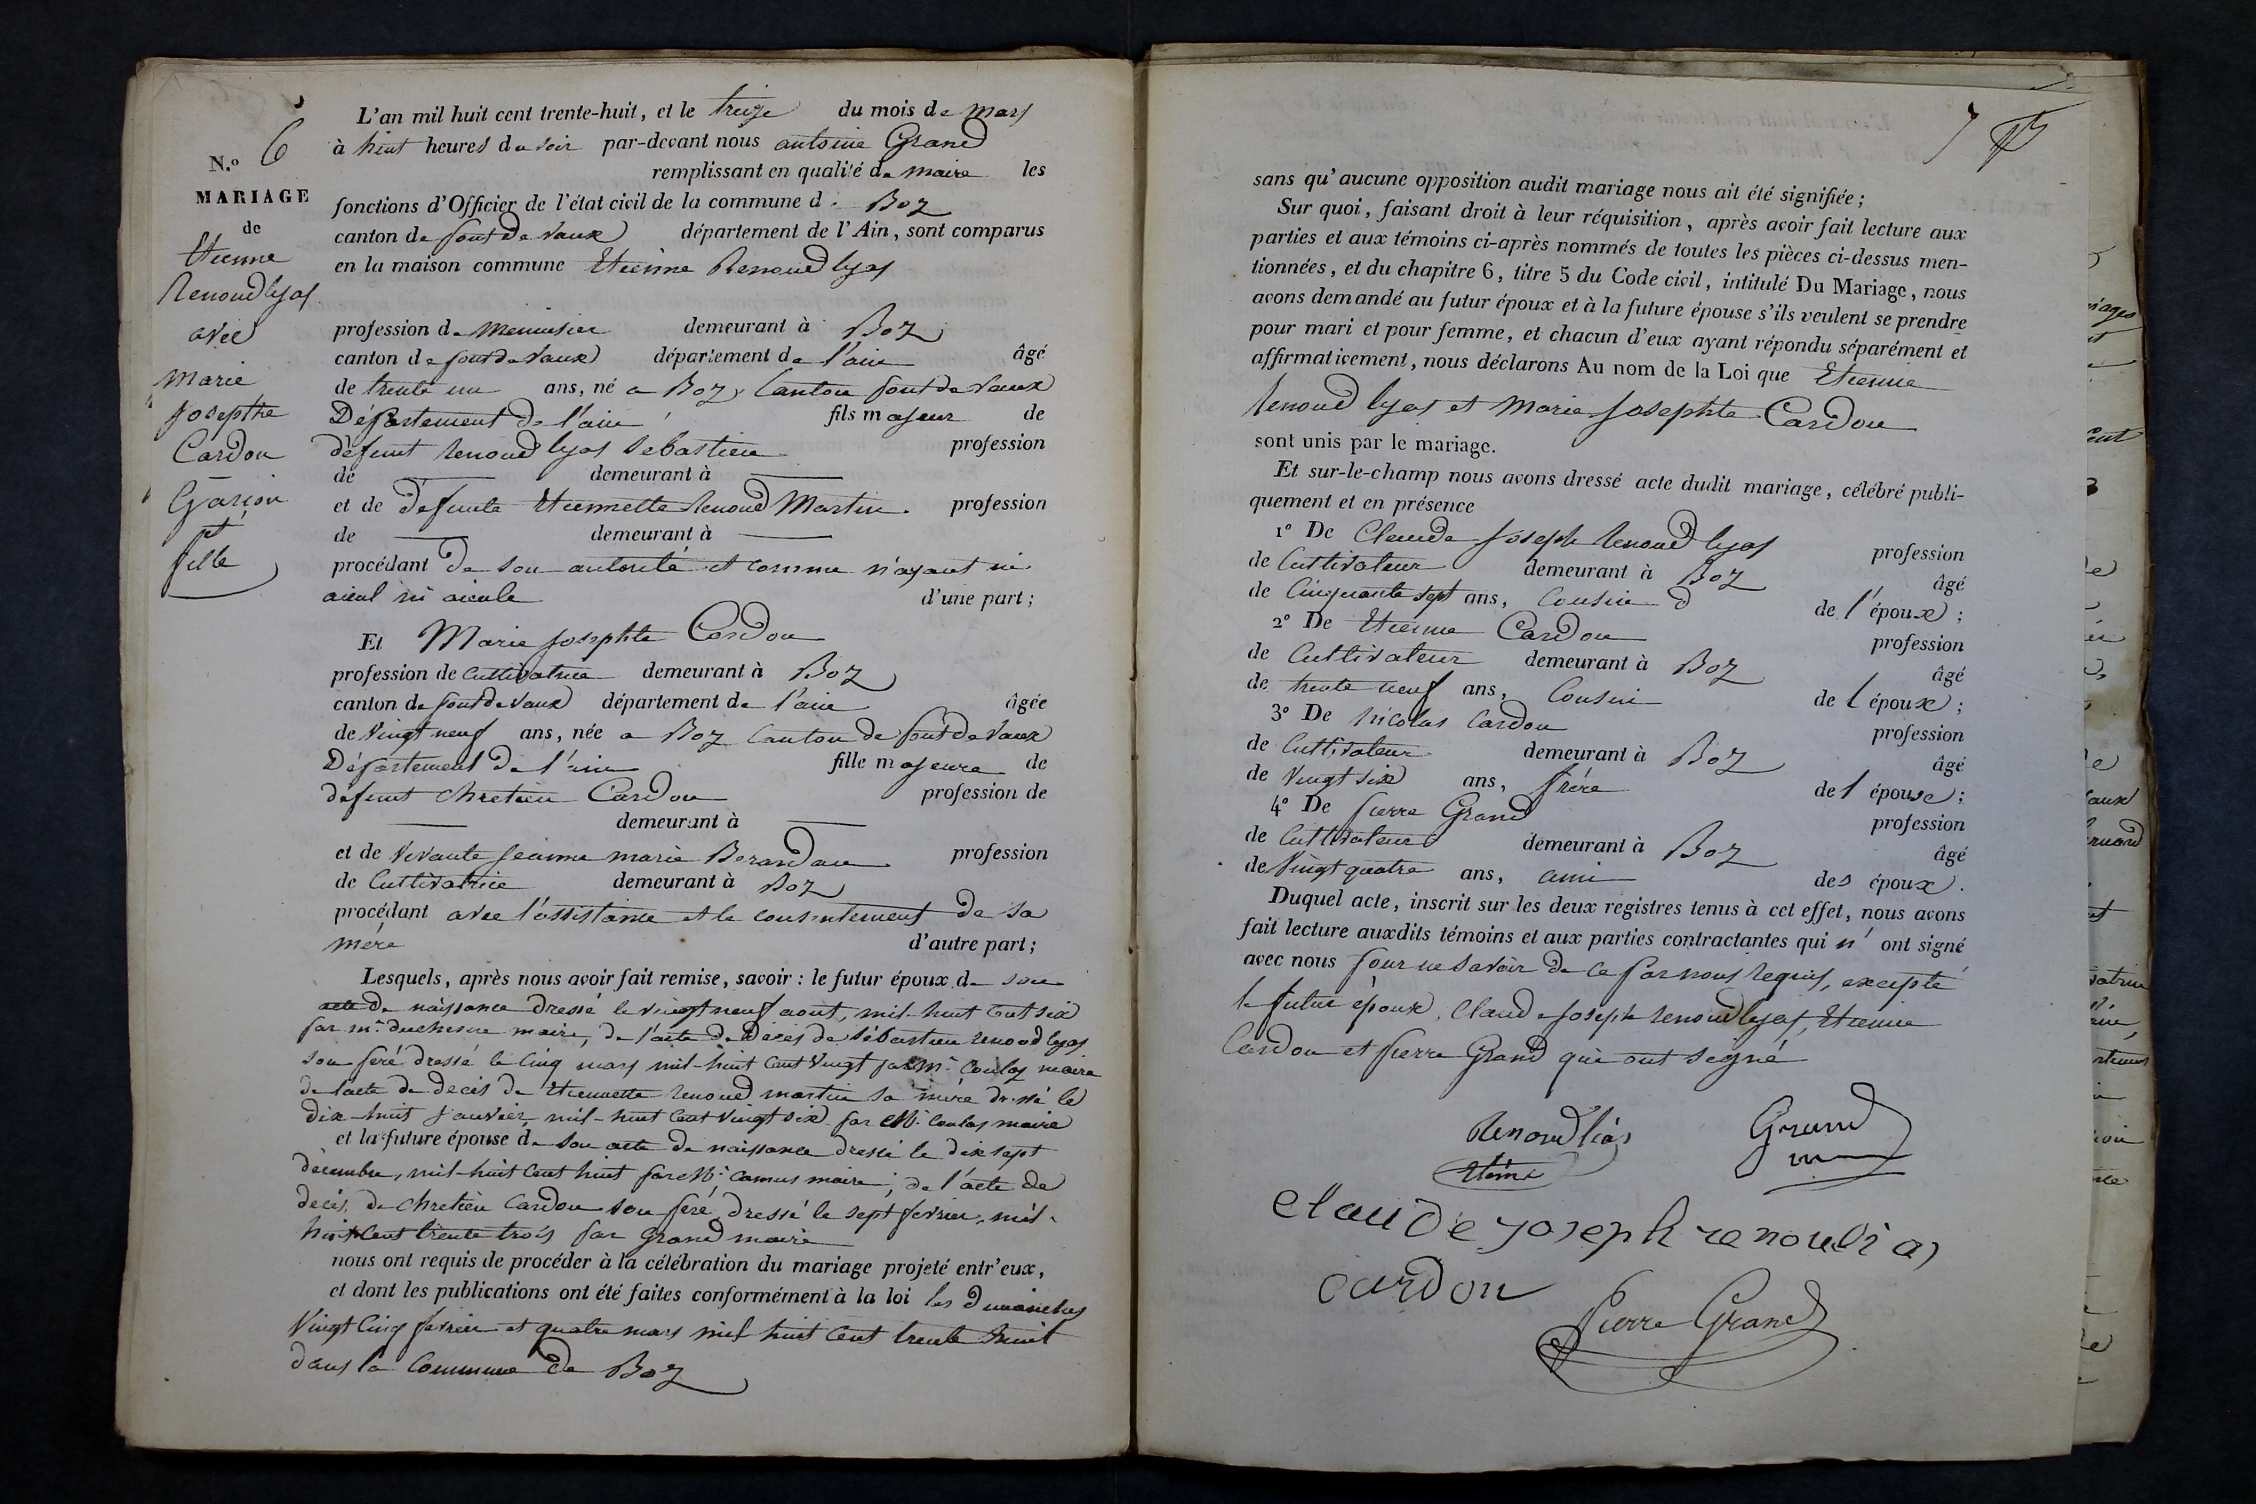 N.o 6
MARIAGE
de
Etienne
Renoud lyas
avec
Marie
Josephte
Cardon
Garçon
et
fille
L'an mil huit cent trente-huit, et le treize du mois de Mars
à huit heures du soir par-devant nous antoine Grand
remplissant en qualité de maire les
fonctions d'Officier de l'état civil de la commune d. Boz
canton de pont de Vaux département de l'Ain, sont comparus
en la maison commune Etienne Renoud lyas
profession de Menuisier demeurant à Boz
canton de pont de Vaux département de l'ain âgé
de trente un ans, né a Boz, Canton pont de Vaux
Département de l'ain fils majeur de
défunt Renoud lyas Sebastien profession
de demeurant à
et de défunte Etiennette Renoud Martin. profession
de demeurant à
procédant de son autorité et comme n'ayant ni
aieul ni aieule d'une part;
Et Marie Josephte Cardon
profession de Cultivatrice demeurant à Boz
canton de pont de Vaux département de l'ain âgée
de Vingt neuf ans, née a Boz Canton de pont de Vaux
Département de l'ain fille majeure de
défunt Chretien Cardon profession de
demeurant à
et de Vivante Jeanne marie Berardan profession
de Cultivatrice demeurant à Boz
procédant avec l'assistance et le consentement de sa
mère d'autre part;
Lesquels, après nous avoir fait remise, savoir: le futur époux de son
acte de naissance dressé le vingt neuf aout, mil-huit Cent six
par mr. duchesne maire, de l'acte de Décès de Sébastien renoud lyas
son peré dressé le Cinq mars mil-huit Cent Vingt par Mr. Coulas maire
de l'acte de decès de Etiennette renoud martin sa mère dressé le
dix-huit janvier, mil-huit Cent Vingt six par Mr. Coulas maire
et la future épouse de son acte de naissance dressé le dix sept
décembre, mil-huit Cent huit par Mr. Camus maire, de l'acte de
decès, de Chretien Cardon son peré, dressé le sept fevrier, mil-
huit Cent trente trois par Grand maire
nous ont requis de procéder à la célébration du mariage projeté entr'eux,
et dont les publications ont été faites conformément à la loi les dimanches
Vingt Cinq fevrier et quatre mars mil huit Cent trente huit
dans la Commune de Boz
7
sans qu'aucune opposition audit mariage nous ait été signifiée;
Sur quoi, faisant droit à leur réquisition, après avoir fait lecture aux
parties et aux témoins ci-après nommés de toutes les pièces ci-dessus men-
tionnées, et du chapitre 6, titre 5 du Code civil, intitulé Du Mariage, nous
avons demandé au futur époux et à la future épouse s'ils veulent se prendre
pour mari et pour femme, et chacun d'eux ayant répondu séparément et
affirmativement, nous déclarons Au nom de la Loi que Etienne
Renoud lyas et Marie Josephte Cardon
sont unis par le mariage.
Et sur-le-champ nous avons dressé acte dudit mariage, célébré publi-
quement et en présence
1o De Claude Joseph Renoud lyas profession
de Cultivateur demeurant à Boz âgé
de Cinquante sept ans, Cousin de l'époux;
2o De Etienne Cardon profession
de Cultivateur demeurant à Boz âgé
de trente neuf ans, Cousin de l'époux;
3o De Nicolas Cardon profession
de Cultivateur demeurant à Boz âgé
de Vingt six ans, frére de l épouse;
4o De pierre Grand profession
de Cultivateur demeurant à Boz âgé
de Vingt quatre ans, ami des époux.
Duquel acte, inscrit sur les deux registres tenus à cet effet, nous avons
fait lecture auxdits témoins et aux parties contractantes qui n' ont signé
avec nous pour ne savoir de ce par nous requis, excepté
le futur époux, Claude Joseph renoud lyas, Etienne
Cardon et pierre Grand qui ont signé
Renoud lias Grand
Etiene
claude joseph renoudlias
cardon
Pierre Grand